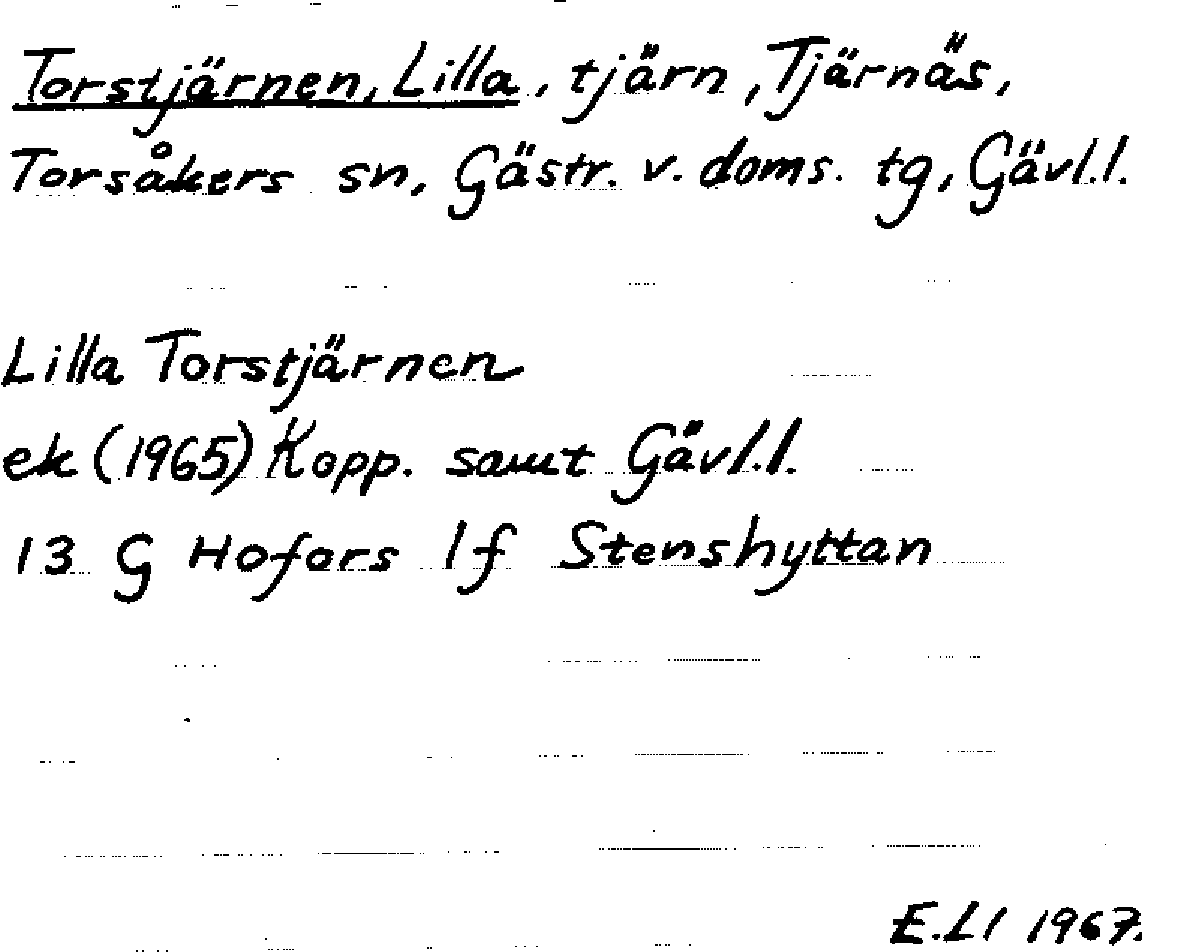 Torstjärnen, Lilla, tjärn, Tjärnäs,
Torsåkers sn, Gästr. v. doms. tg, Gävl.l.
Lilla Torstjärnen
ek (1965) Kopp. samt Gävl.l.
13 G Hofors 1f Stenshyttan
E.Ll 1967.